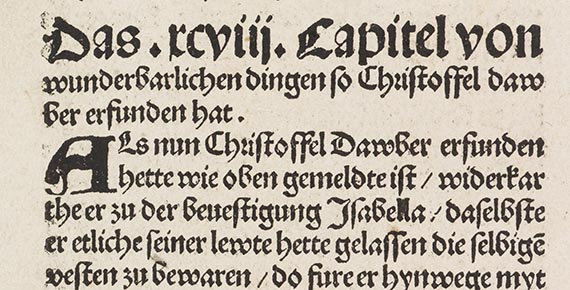 Das .xcviij. Capitel von
wunderbarlichen dingen so Christoffel daw
ber erfunden hat.
ALs nun Christoffel Dawber erfunden
hette wie oben gemeldte ist / widerkar
the er zu der beuestigung Jsabella / daselbste
er etliche seiner lewte hette gelassen die selbigē
vesten zu bewaren / do fure er hynwege myt